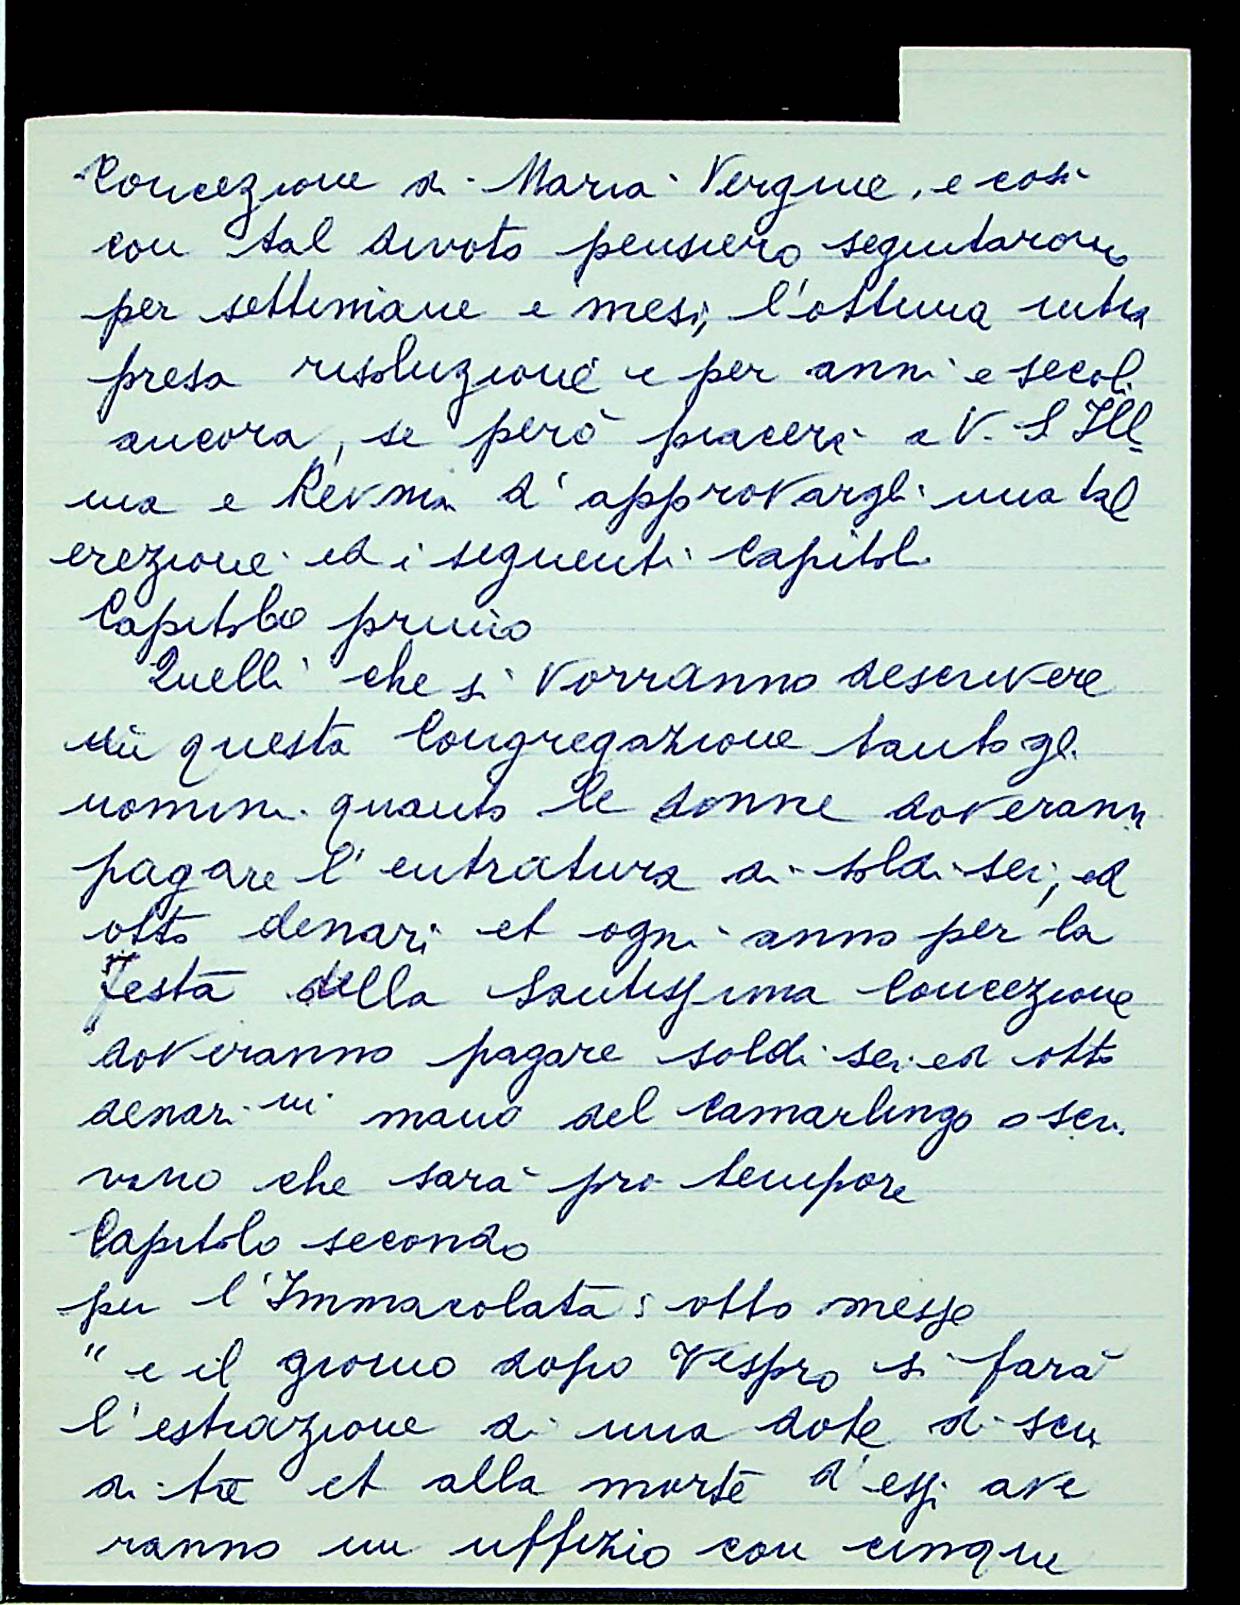 Concezione di Maria Vergine, e così
con tal divoto pensiero seguitarono
per settimane e mesi, l'ottima intra
presa risoluzione e per anni e secoli
ancora, se però piacerà a V. S Ill
ma e Revma d'approvargli una tal
erezione ed i seguenti Capitoli
Capitolo primo
Quelli che si vorranno descrivere
in questa Congregazione tanto gli
uomini quanto le donne doverann
pagare l'entratura di soldi sei, ed
otto denari et ogni anno per la
festa della Santissima Concezione
doveranno pagare soldi sei ed otto
denari in mano del Camarlingo o scri
vano che sarà pro tempore
Capitolo secondo
per l'Immacolata: otto messe
" e il giorno dopo Vespro si farà
l'estrazione di una dote di scu
di tre et alla morte d'essi ave
ranno un uffizio con cinque